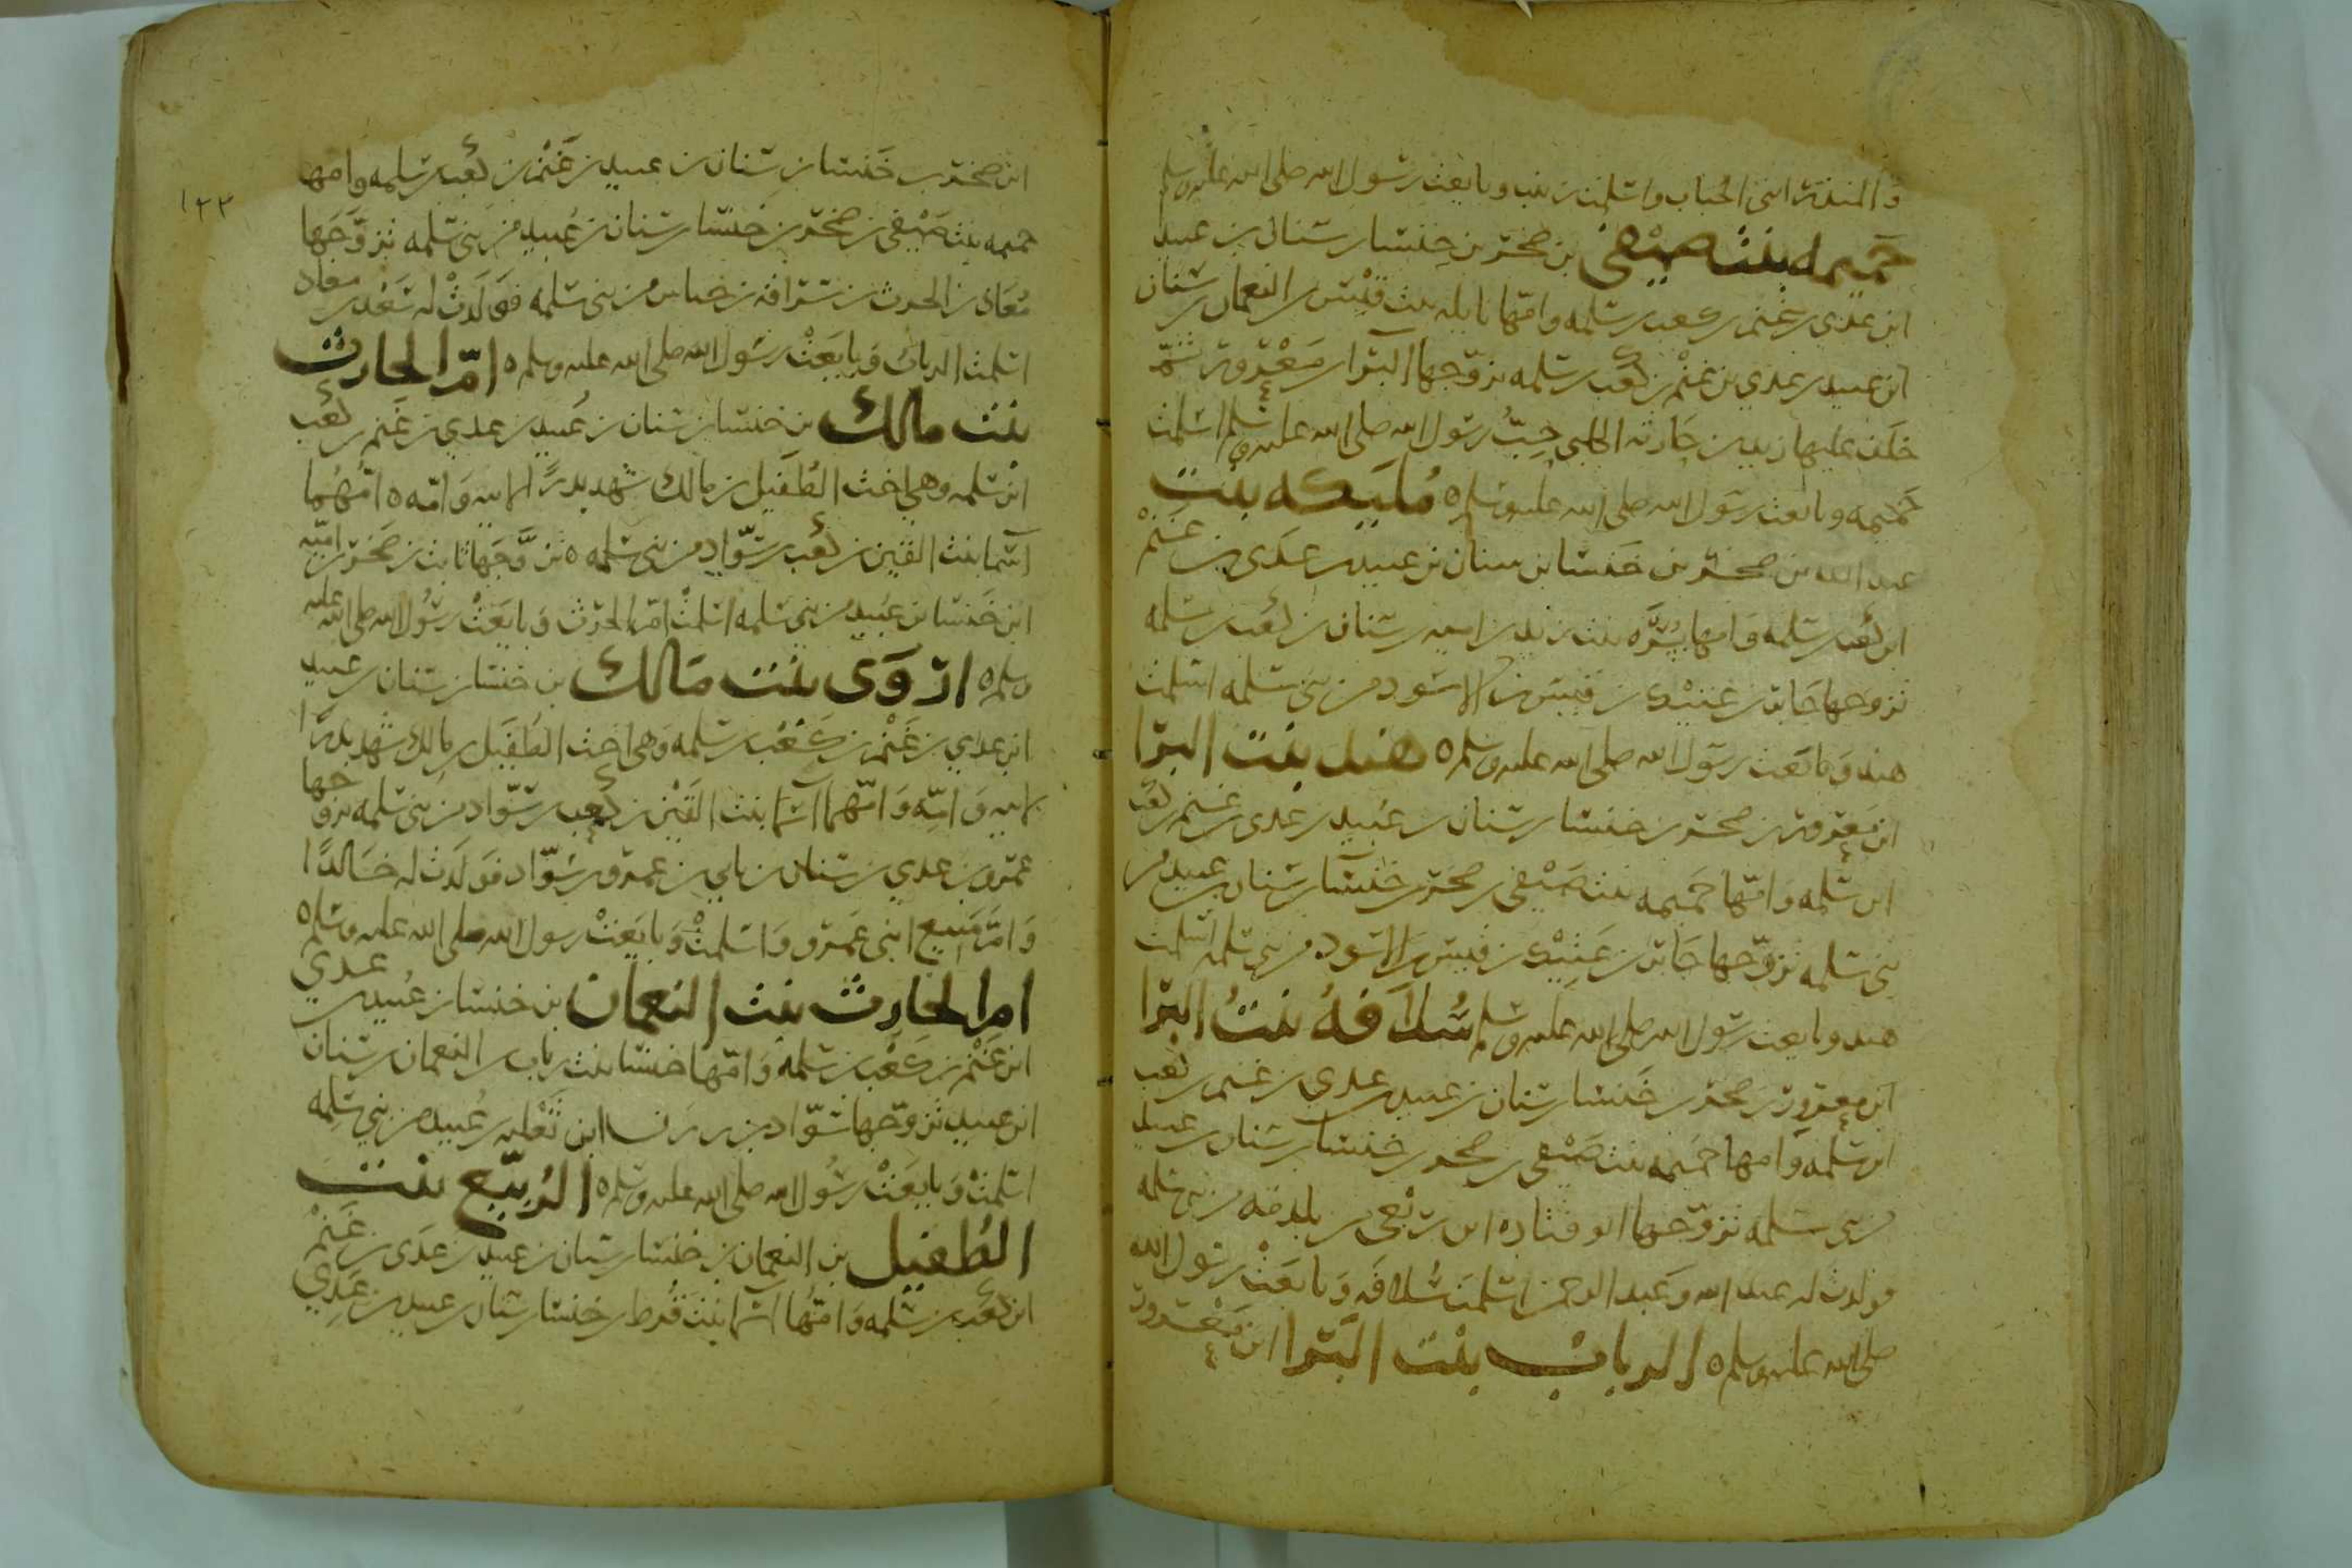 و المنذر ابنى الحباب واسلمت زينب وبايعت رسول الله صلى الله عليه وسلم
حميمه بنت صيفي بن صخر بن خنسا بن سنان بن عبيد
ابن عدي بن غنم بن كعب بن سلمه وامها نايله بنت قيس بن النعمان بن سنان
ابن عبيد بن عدي بن غنم بن كعب بن سلمه تزوجها البرا بن معرور ثم
خلف عليها زيد بن حارثه الكلبى حب رسول الله صلى الله عليه وسلم اسلمت
حميمه وبايعت رسول الله صلى الله عليه وسلم ه مليكه بنت
عبد الله بن صخر بن خنسا بن سنان بن عبيد بن عدي بن غنم
ابن كعب بن سلمه وامها بسره بنت زيد بن اميه بن سنان بن كعب بن سلمه
تزوجها جابر بن عتيك بن قيس بن الاسود من بنى سلمه اسلمت
هند وبايعت رسول الله صلى الله عليه وسلم ه هند بنت البرا
ابن معرور بن صخر بن خنسا بن سنان بن عبيد بن عدي بن غنم بن كعب
ابن سلمه وامها حميمه بنت صيفي بن صخر بن خنسا بن سنان بن عبيد من
بنى سلمه تزوجها جابر بن عتيك بن قيس بن الاسود من بنى سلمه اسلمت
هند وبايعت رسول الله صلى الله عليه وسلم سُلاَفهُ بنتُ البرا
ابن معرور بن صخر بن خنسا بن سنان بن عبيد بن عدي بن غنم بن كعب
ابن سلمه وامها حميمه بنت صيفي بن صخر بن خنسا بن سنان بن عبيد
من بنى سلمه تزوجها ابو قتاده ابن ربعي بن بلدمه من بنى سلمه
فولدت له عبد الله وعبد الرحمن اسلمت سلافه وبايعت رسول الله
صلى الله عليه وسلم ه الرباب بنت البرا ابن معرور
١٢٢
ابن صخر بن خنسا بن سنان بن عبيد بن غنم بن كعب بن سلمه وامها
حميمه بنت صيفي بن صخر بن خنسا بن سنان بن عبيد من بنى سلمه تزوجها
معاذ بن الحرث بن سراقه بن خناس من بنى سلمه فولدت له سعد بن معاذ
اسلمت الرباب وبايعت رسول الله صلى الله عليه وسلم ه ام الحارث
بنت مالك بن خنسا بن سنان بن عبيد بن عدي بن غنم بن كعب
ابن سلمه وهي اخت الطفيل بن مالك شهد بدرا لابيه وامه ه امهما
اسما بنت القين بن كعب بن سواد من بنى سلمه ه تزوجها ثابت بن صخر بن اميه
ابن خنسا بن عبيد من بنى سلمه اسلمت ام الحرث وبايعت رسول الله صلى الله عليه
وسلم ه اروى بنت مالك بن خنسا بن سنان بن عبيد
ابن عدي بن غنم بن كعب بن سلمه وهى اخت الطفيل بن مالك شهد بدرا
لابيه وامه وامهما اسما بنت القين بن كعب بن سواد من بنى سلمه تزوجها
عمرو بن عدي بن سنان بن نابي بن عمرو بن سواد فولدت له خالدا
وام منيع ابنى عمرو واسلمت وبايعت رسول الله صلى الله عليه وسلم ه
ام الحارث بنت النعمان بن خنسا بن عبيد بن عدي
ابن غنم بن كعب بن سلمه وامها خنسا بنت رباب بن النعمان بن سنان
ابن عبيد تزوجها سواد بن ابن ثعلبه بن عبيد من بني سلمه
اسلمت وبايعت رسول الله صلى الله عليه وسلم ه الرُبيّع بنت
الطُفيل بن النعمان بن خنسا بن سنان بن عبيد بن عدي بن غنم
ابن كعب بن سلمه وامها اسما بنت قرط بن خنسا بن سنان بن عبيد بن عدي